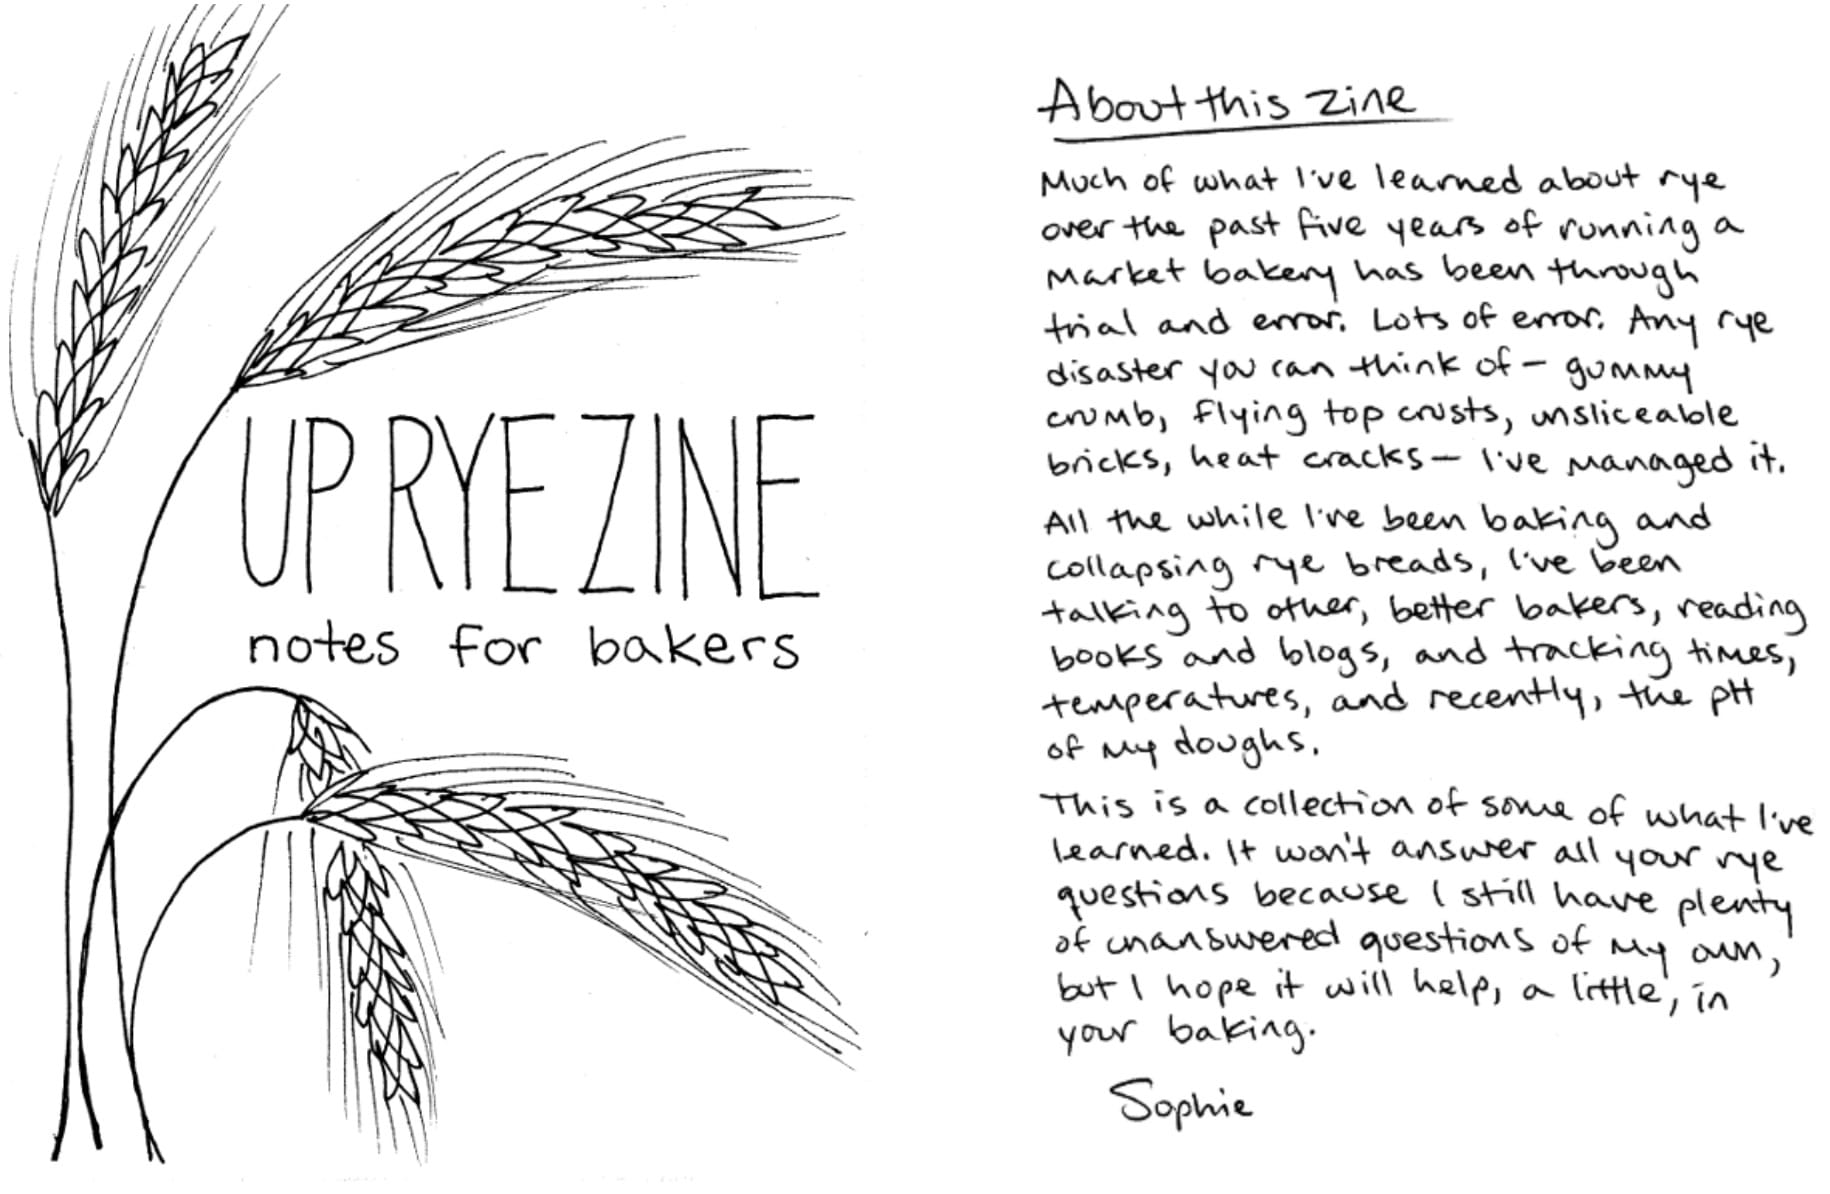 UP RYE ZINE
notes for bakers
About this zine
Much of what I've learned about rye
over the past five years of running a
market bakery has been through
trial and error. Lots of error. Any rye
disaster you can think of – gummy
crumb, flying top crusts, unsliceable
bricks, heat cracks – I've managed it.
All the while I've been baking and
collapsing rye breads, I've been
talking to other, better bakers, reading
books and blogs, and tracking times,
temperatures, and recently, the pH
of my doughs.
This is a collection of some of what I've
learned. It won't answer all your rye
questions because I still have plenty
of unanswered questions of my own,
but I hope it will help, a little, in
your baking.
Sophie